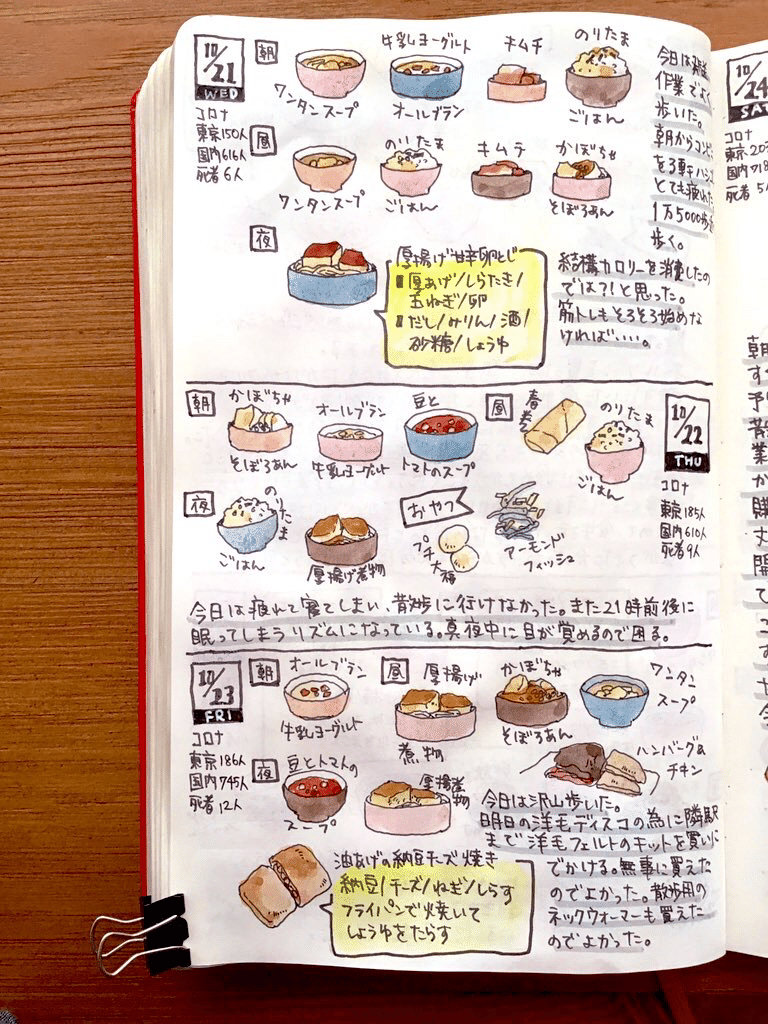 10/21
WED
コロナ
東京150人
国内616人
死者6人
朝
ワンタンスープ
牛乳ヨーグルト
オールブラン
キムチ
のりたま
ごはん
昼
ワンタンスープ
のりたま
ごはん
キムチ
かぼちゃ
そぼろあん
夜
厚揚げ甘辛卵とじ
■厚あげ/しらたき/
玉ねぎ/卵
■だし/みりん/酒/
砂糖/しょうゆ
今日は発送
作業でよく
歩いた。
朝からコンビニ
を3軒ハシゴ
とても疲れた
1万5000歩
歩く。
結構カロリーを消費したの
では?!と思った。
筋トレもそろそろ始めな
ければ・・・・。
10/22
THU
コロナ
東京185人
国内610人
死者9人
朝
かぼちゃ
そぼろあん
オールブラン
牛乳ヨーグルト
豆と
トマトのスープ
昼
春巻
のりたま
ごはん
夜
のりたま
ごはん
厚揚げ煮物
おやつ
プチ大福
アーモンド
フィッシュ
今日は疲れて寝てしまい、散歩に行けなかった。また21時前後に
眠ってしまうリズムになっている。真夜中に目が覚めるので困る。
10/23
FRI
コロナ
東京186人
国内745人
死者12人
朝
オールブラン
牛乳ヨーグルト
昼
厚揚げ
煮物
かぼちゃ
そぼろあん
ワンタン
スープ
ハンバーグ&
チキン
夜
豆とトマトの
スープ
厚揚煮物
油あげの納豆チーズ焼き
納豆/チーズ/ねぎ/しらす
フライパンで焼いて
しょうゆをたらす
今日は沢山歩いた。
明日の洋毛ディスコの為に隣駅
まで洋毛フェルトのキットを買いに
でかける。無事に買えた
のでよかった。散歩用の
ネックウォーマーも買えた
のでよかった。
10/24
コロナ
死者